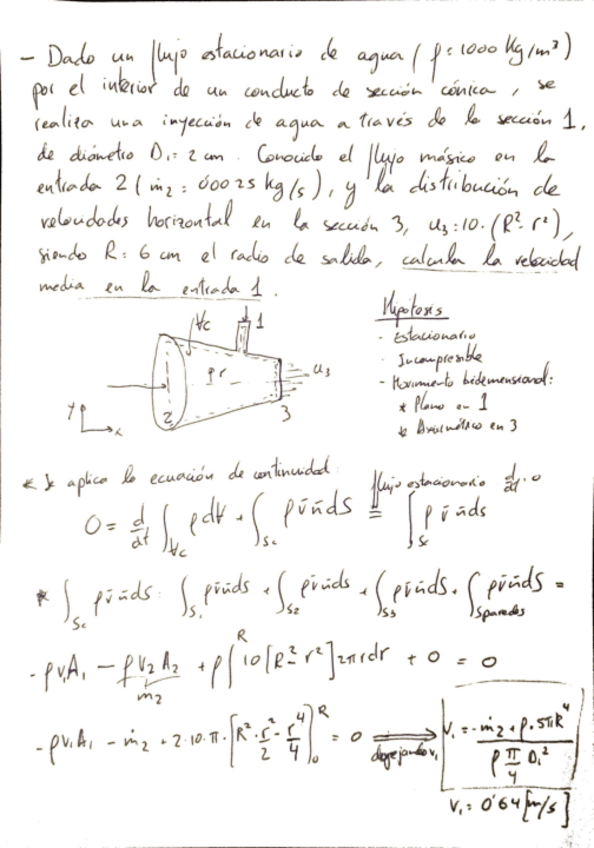 - Dado un flujo estacionario de agua (ρ = 1000 Kg/m³)
por el interior de un conducto de sección cónica, se
realiza una inyección de agua a través de la sección 1,
de diámetro D₁ = 2 cm. Conocido el flujo másico en la
entrada 2 (ṁ₂ = 0'0025 kg/s), y la distribución de
velocidades horizontal en la sección 3, u₃ = 10·(R² - r²),
siendo R = 6 cm el radio de salida, calcula la velocidad
media en la entrada 1.
Hipótesis
- Estacionario
Incompresible
- Movimiento bidimensional:
* Plano en 1
* Axisimétrico en 3
Vc
1
ρr
u₃
Y
x
2
3
* Se aplica la ecuación de continuidad:
flujo estacionario d/dt = 0
0 = d/dt ∫Vc ρ dV + ∫Sc ρ v̄ n̄ dS = ∫Sc ρ v̄ n̄ ds
* ∫Sc ρ v̄ n̄ ds = ∫S₁ ρ v̄ n̄ ds + ∫S₂ ρ v̄ n̄ ds + ∫S₃ ρ v̄ n̄ ds + ∫Sparedes ρ v̄ n̄ dS =
- ρ v₁ A₁ - ρ v₂ A₂ + ρ ∫ᴿ 10 [R² - r²] 2πr dr + 0 = 0
ṁ₂
- ρ v₁ A₁ - ṁ₂ + 2·10·π·[R²·r²/2 - r⁴/4]₀ᴿ = 0 ⟹ despejando v₁ V₁ = (-ṁ₂ + ρ·5πR⁴)/(ρ π/4 D₁²)
V₁ = 0'64 [m/s]